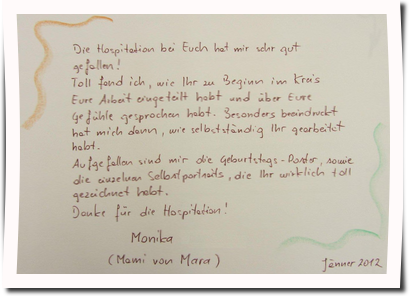 Die Hospitation bei Euch hat mir sehr gut
gefallen!
Toll fand ich, wie Ihr zu Beginn im Kreis
Eure Arbeit eingeteilt habt und über Eure
Gefühle gesprochen habt. Besonders beeindruckt
hat mich dann, wie selbstständig Ihr gearbeitet
habt.
Aufgefallen sind mir die Geburtstags- sowie
die einzelnen Selbstportraits, die Ihr wirklich toll
gezeichnet habt.
Danke für die Hospitation!
Monika
(Mami von Mara)
Jänner 2012